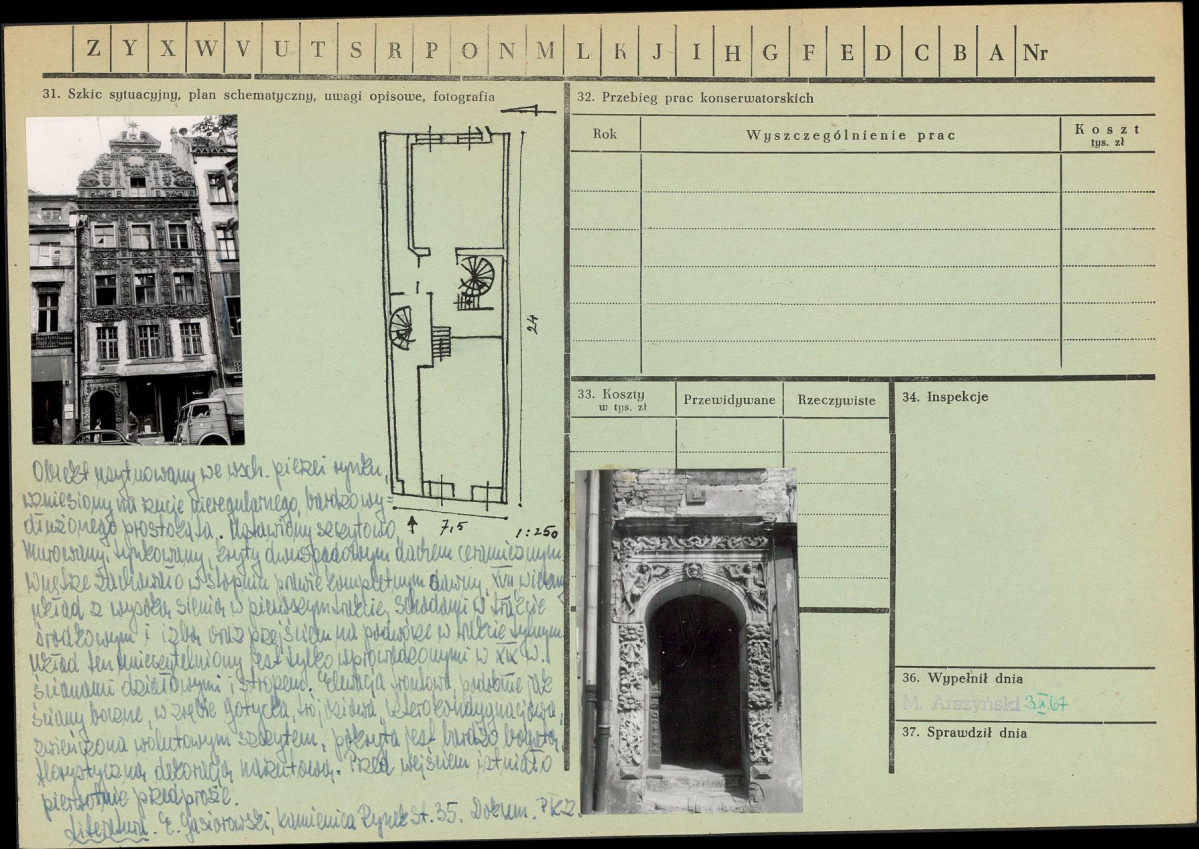 Z Y X W V U T S R P O N M L K J I H G F E D C B A Nr
31. Szkic sytuacyjny, plan schematyczny, uwagi opisowe, fotografia
24
7,5
1:250
Obiekt usytuowany we wsch. pierzei rynku,
wzniesiony na rzucie nieregularnego, bardzo wy-
dłużonego prostokąta. Ustawiony szczytowo.
Murowany, tynkowany, kryty dwuspadowym dachem ceramicznym
Wnętrze zachowało w stopniu prawie kompletnym dawny, XVII wieczny
układ z wysoką sienią w pierwszym trakcie, schodami w trakcie
środkowym i izbą oraz przejściem na podwórze w trakcie tylnym.
Układ ten unieczytelniony jest tylko wprowadzonymi w XIX w.
ścianami działowymi i stropem. Elewacja frontowa, podobnie jak
ściany boczne, w zrębie gotycka, osiowa, kondygnacjowa,
zwieńczona wolutowym szczytem, pokryta jest bardzo bogatą,
florystyczną dekoracją narzutową. Przed wejściem istniało
pierwotnie przedproże.
Literatura. E. Gąsiorowski, Kamienica Rynek St. 35. Dokum. PKZ.
32. Przebieg prac konserwatorskich
Rok Wyszczególnienie prac Koszt
tys. zł
33. Koszty
w tys. zł
Przewidywane Rzeczywiste
34. Inspekcje
36. Wypełnił dnia
M. Arszyński 3 XI.67
37. Sprawdził dnia